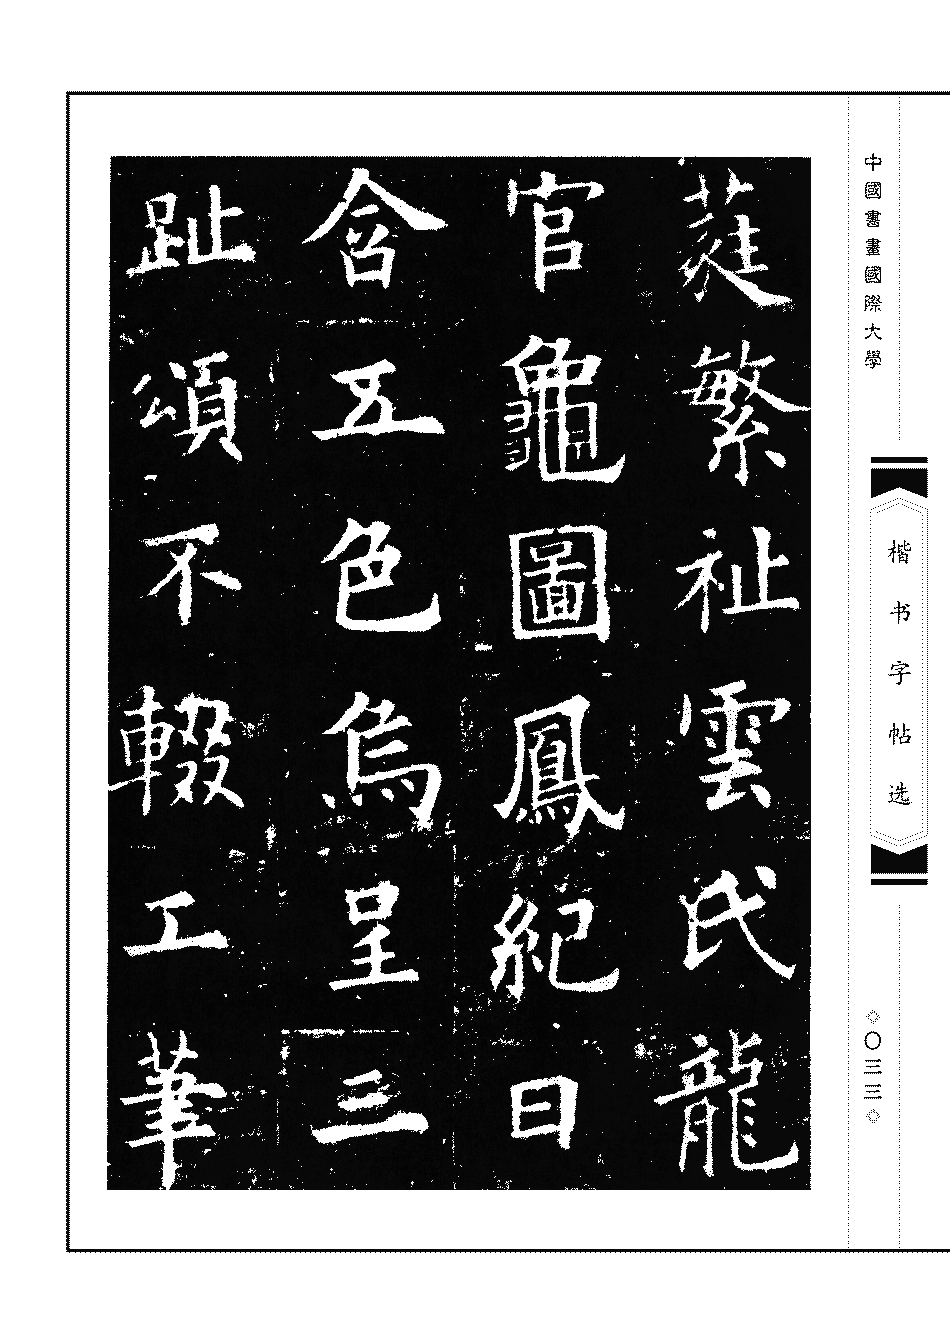 中國書畫國際大學
楷书字帖选
◇〇三三◇
蕤繁祉雲氏龍
官龜圖鳳紀日
含五色烏呈三
趾頌不輟工筆